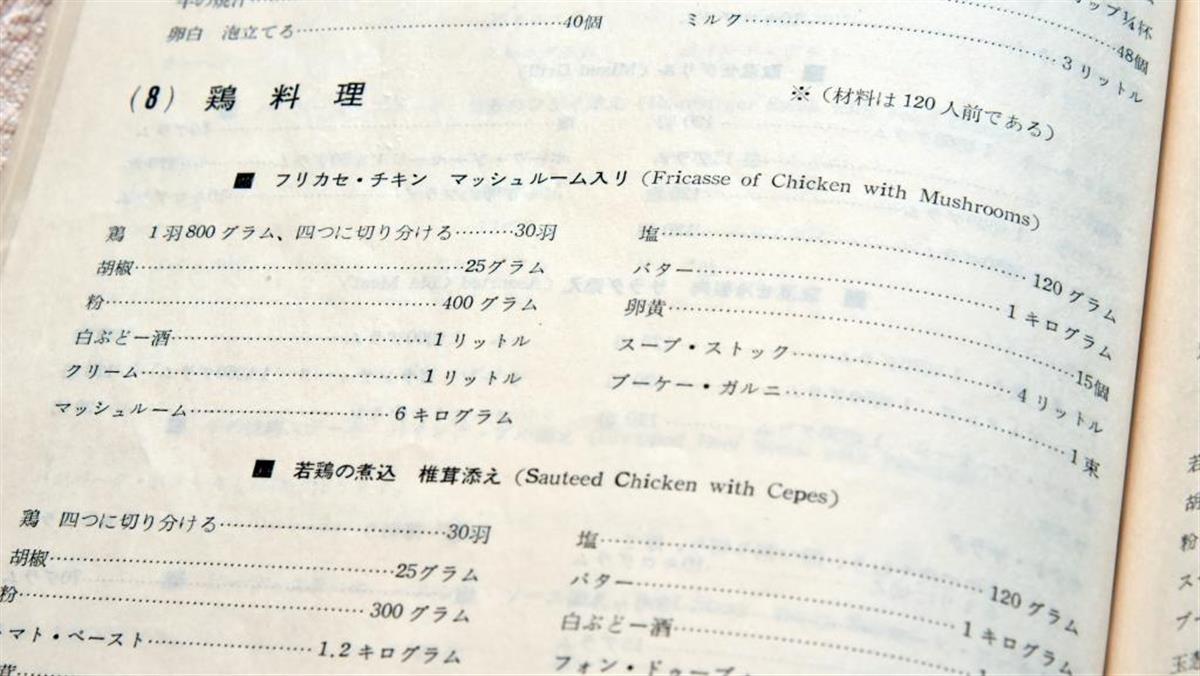 卵白 泡立てる……40個
ミルク……3 リットル
48個
(8) 鶏料理
※(材料は120人前である)
■ フリカセ・チキン マッシュルーム入り (Fricasse of Chicken with Mushrooms)
鶏 1羽800グラム、四つに切り分ける………30羽
胡椒……25グラム
粉……400グラム
白ぶどー酒……1リットル
クリーム……1リットル
マッシュルーム……6キログラム
塩……120グラム
バター……1キログラム
卵黄……15個
スープ・ストック……4リットル
ブーケー・ガルニ……1束
■ 若鶏の煮込 椎茸添え (Sauteed Chicken with Cepes)
鶏 四つに切り分ける……30羽
胡椒……25グラム
粉……300グラム
マト・ペースト……1.2キログラム
塩……120グラム
バター……1キログラム
白ぶどー酒……
フォン・ドゥーブ